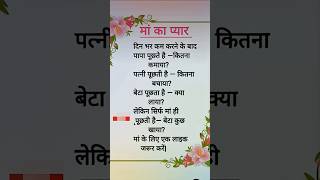 मां का प्यार
दिन भर कम करने के बाद
पापा पूछते है —कितना
कमाया?
पत्नी पूछती है — कितना
बचाया?
बेटा पूछता है — क्या
लाया?
लेकिन सिर्फ मां ही
पूछती है— बेटा कुछ
खाया?
मां के लिए एक लाइक
जरूर करें|